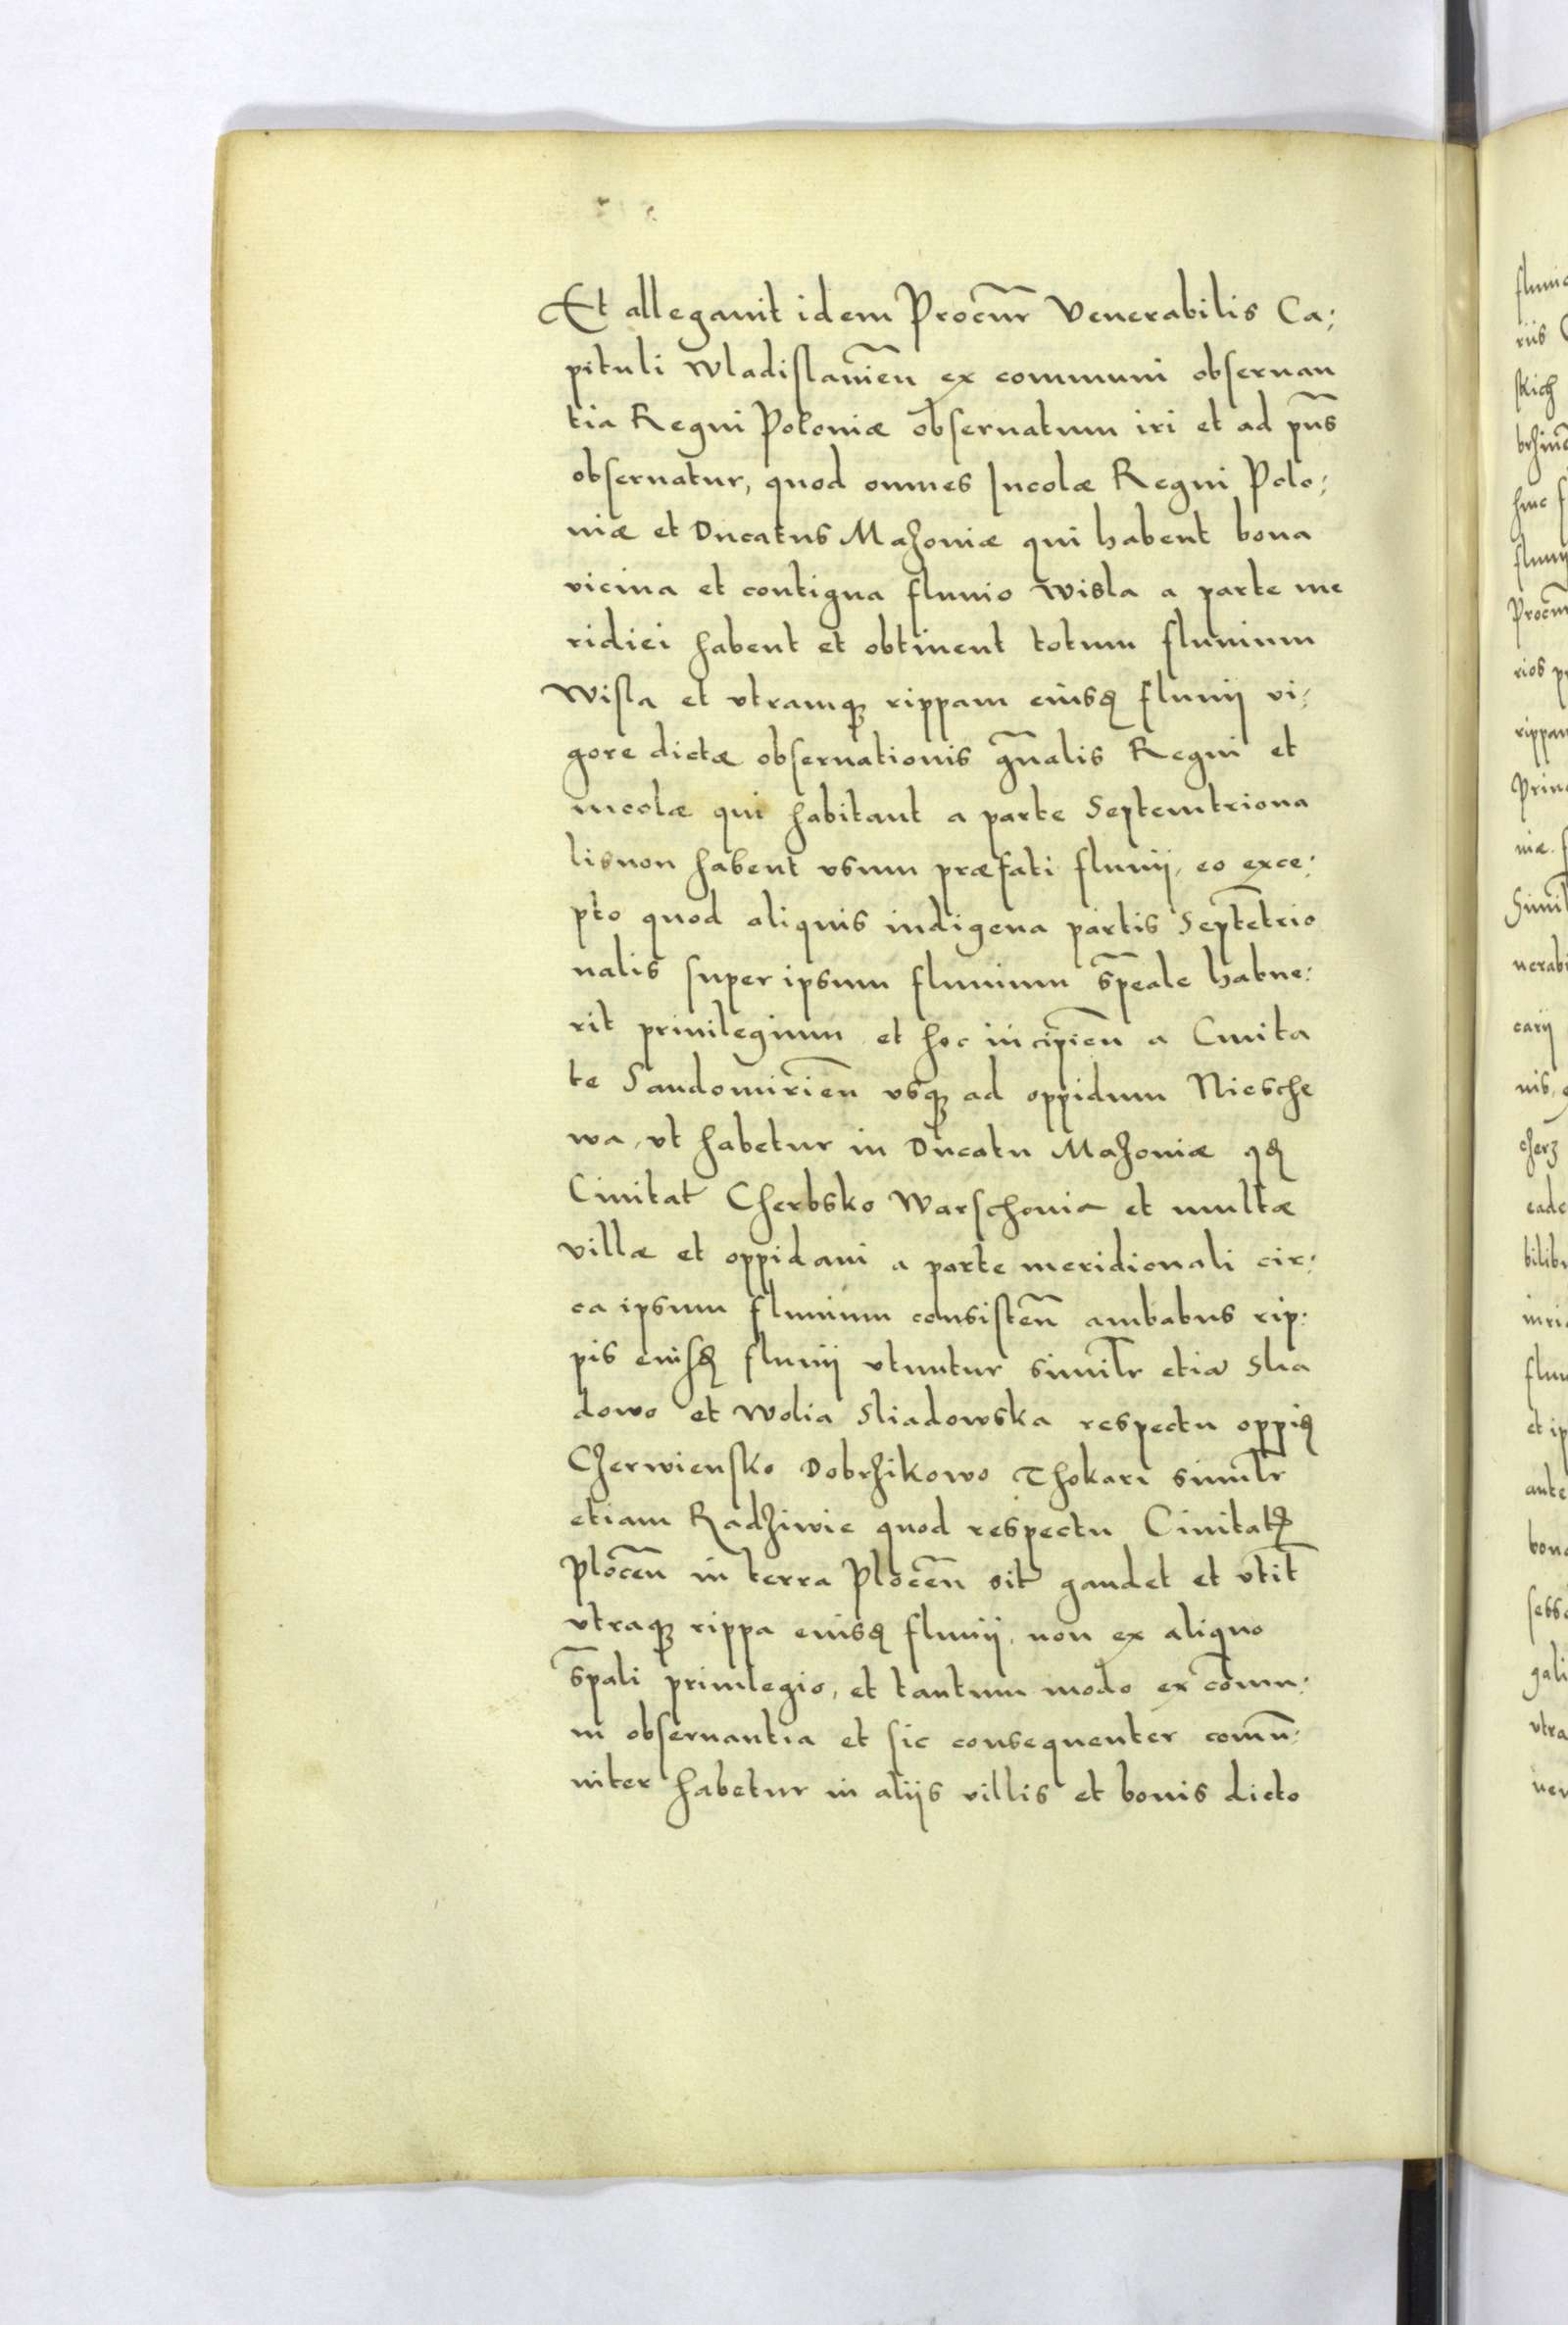 Et allegauit idem Procur̃ Venerabilis Ca:
pituli Wladislauien̄ ex communi obseruan
tia Regni Poloniæ obseruatum iri et ad pn̄s
obseruatur, quod omnes Incolæ Regni Polo:
niæ et Ducatus Mazouiæ qui habent bona
vicina et contigua fluuio Wisla a parte me
ridiei habent et obtinent totum fluuium
Wisla et vtramqȝ rippam eiusdꝫ fluuij vi:
gore dictæ obseruationis gn̄alis Regni et
incolæ qui habitant a parte Septemtriona
lis non habent vsum præfati fluuij, eo exce:
pto quod aliquis indigena partis Septēṫrio
nalis super ipsum fluuium sp̄eale habue:
rit priuilegium et hoc incipien̄ a Ciuita
te Sandomirien̄ vsqȝ ad oppidum Niesche
wa, vt habetur in Ducatu Mazouiæ qꝫ
Ciuitat̃ Cherbsko Warschouia et multæ
villæ et oppidani a parte meridionali cir:
ca ipsum fluuium consisten̄ ambabus rip:
pis eiusdꝫ fluuij vtuntur similr̄ etiā Slia
dowo et Wolia Sliadowska respectu oppidꝫ
Czerwiensko Dobrzikowo Thokari similr̄
etiam Radziwie quod respectu Ciuitatꝭ
Plocen̄ in terra Plocen̄ sit̃ gaudet et vtit̃
vtraqȝ rippa eiusdꝫ fluuij, non ex aliquo
sp̄ali priuilegio, et tantum modo ex com̄u:
ni obseruantia et sic consequenter com̄u:
niter habetur in alijs villis et bonis dicto